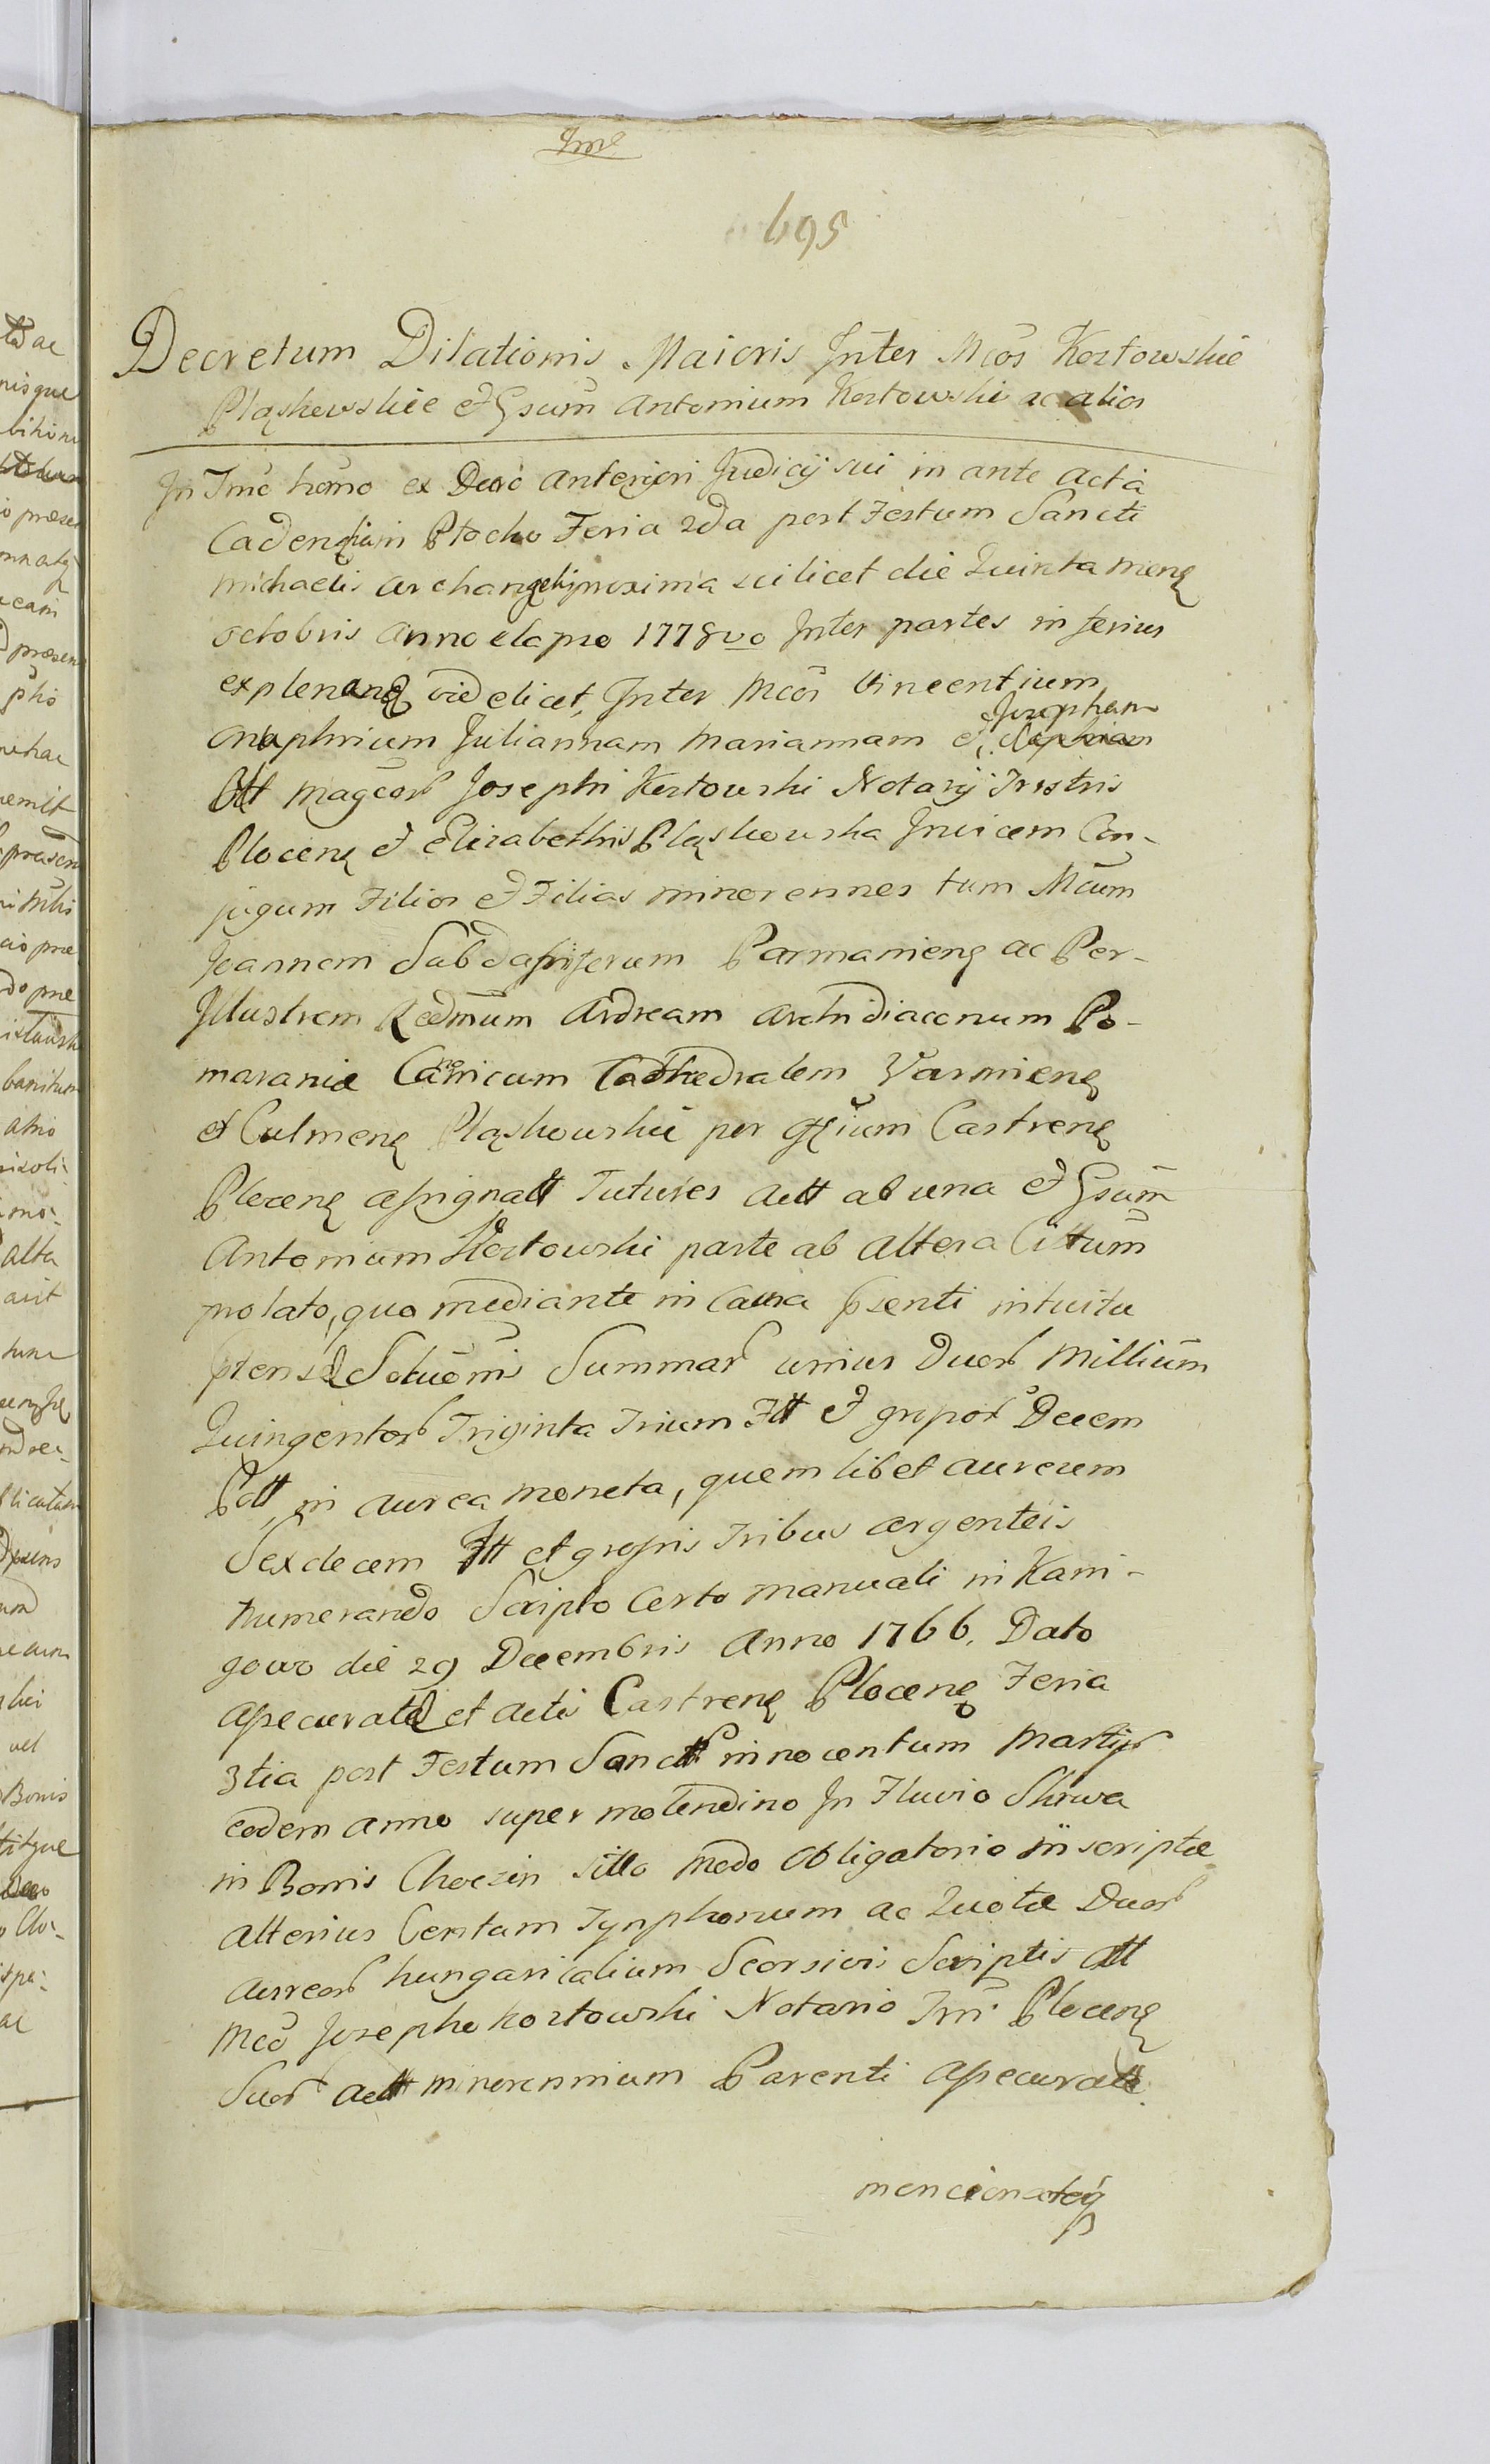 Tme
695
Decretum Dilationis Maioris Inter Mcos Kozłowskie
Pląskowskie et Gsum Antonium Kozłowski ac alios
In Tmo homo ex Decō anteriori Judicij sui in ante acta
Cadentiam Płocko Feria 2da post Festum Sancti
Michaelis Archangeli proxima scilicet die Quinta mens
octobris Anno elapso 1778vo Inter partes inferius
explenand videlicet, Inter Mcos Vincentium
Onuphrium Juliannam Mariannam et Josepham
olt Magcor Josephi Kozłowski Notarij Trrstris
Plocens et Elizabethis Pląskowska Invicem Con-
jugum Filios et Filias minorennes tum Mcum
Joannem Subdapiferum Parmaniens ac Per-
Illustrem Redmum Andream Archidiaconum Po-
maraniæ Canonicum Cathedralem Varmiens
et Culmens Pląskowskie per offium Castrens
Plocens assignatt Tutores actt ab una et Gsum
Antonium Kozłowski parte ab altera Cittum
prolato, quo mediante in Causa psenti intuitu
ptens Solutionis Summar unius Duor Millium
Quingentor Triginta Trium Ftt et grossor Decem
Poltt in aurea moneta, quemlibet aureum
Sexdecem Ftt et grossis Tribus argenteis
Numerando Scripto Certo manuali in Kani-
gowo die 29 Decembris Anno 1766. Dato
assecurat et actis Castrens Plocens Feria
3tia post Festum Sanctt innocentum Martijr
eodem anno super molendino In Fluvio Skrwa
in Bonis Choczin sitto modo obligatorio inscriptæ
alterius Centum Tynphonum ac Quotæ Duor
aureor hungaricalium Seorsivis Scriptis olt
Mco Josepho Kozłowski Notario Trri Plocens
Suor actt minorennium Parenti assecuratt
mencionatq